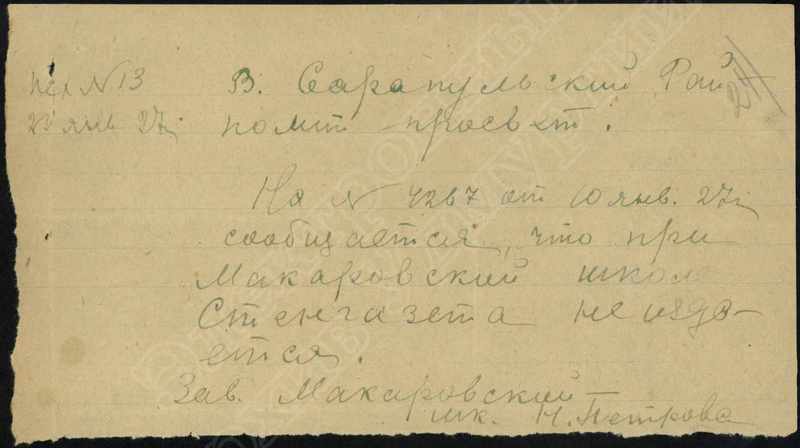 исх N 13
23 янв 27г
В. Сарапульский Рай
полит-просвет.
На N 4267 от 10 янв. 27г
сообщается, что при
Макаровский школ
Стенгазета не изда-
ется.
Зав. Макаровский
шк. Н. Петрова